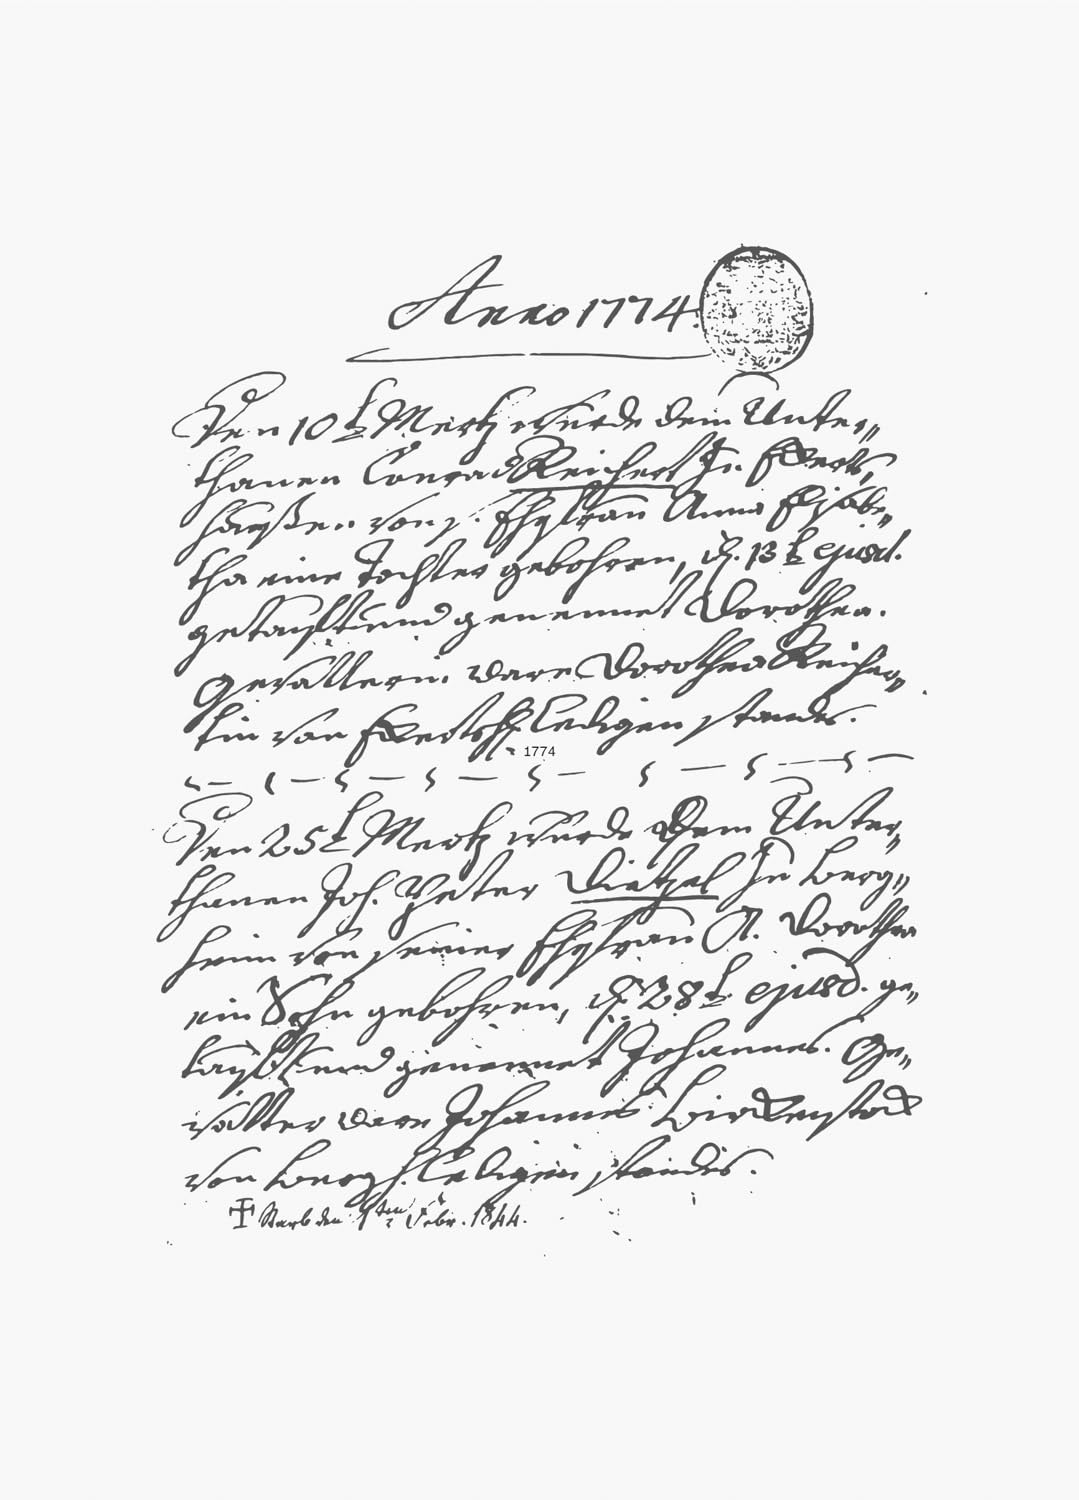 Anno 1774.
Den 10t Mertz wurde dem Unter„
thanen Conrad Reichert In Ewerts„
haußen von s. Ehefrau Anna Elisabe„
tha eine Tochter gebohren, d. 13t ejusd.
getauft und genennet Dorothea.
Gevatterin ware Dorothea Reicher„
tin von Ewertsh. Ledigen standes.
1774
Den 25t Mertz wurde dem Unter„
thanen Joh. Peter Dietzel In Berg„
heim von seiner Ehefrau A. Dorothea
ein Sohn gebohren, d. 28t ejusd. ge„
tauft und genennet Johannes. Ge„
vatter ware Johannes
von Bergh. Ledigen standes.
Starb den ten Febr. 1844.